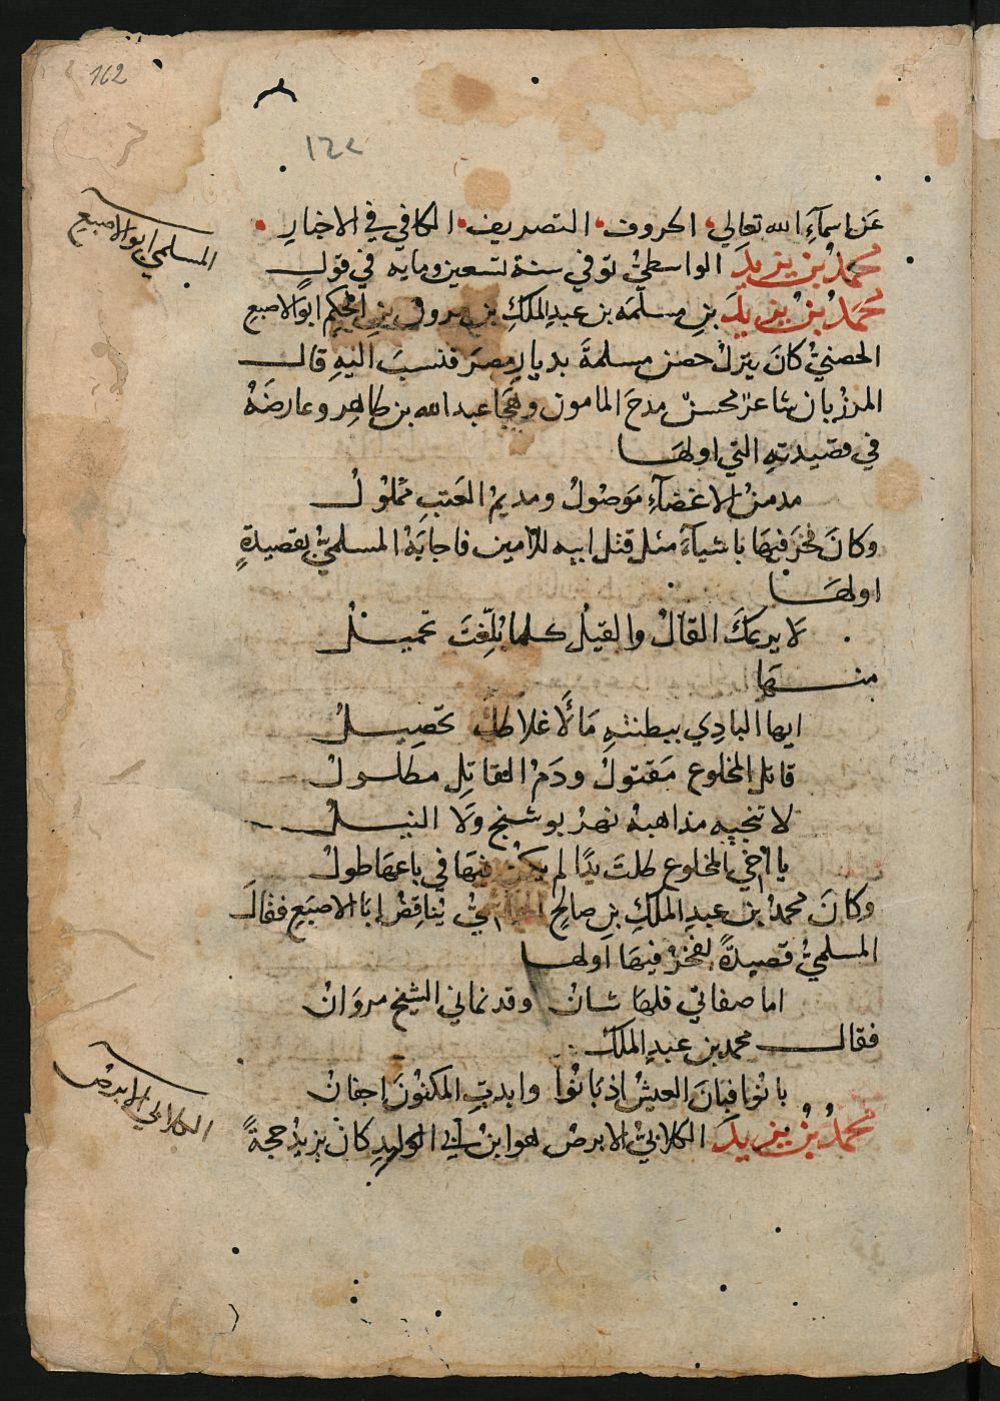 162
١٦٢
عَن اسمآءِ الله تعالي، الحروف، التصريف، الكافي في الاخبارِ
محمدُ بنُ يزيدَ الواسطيُّ توفي سنة تسعين ومايه في قولٍ
المسلمي ابو الاصبع
محمدُ بنُ يزيدَ بنِ مسلمَه بن عبدِ الملكِ بن مروان بنِ الحكم ابو الاصبع
الحصنيُّ كانَ ينزلُ حصن مسلمةَ بديارِ مصرَ فنسبَ اليهِ قال
المرزبان شاعرٌ محسنٌ مدحَ المامون وهَجَا عبد الله بن طاهرٍ وعارضَهُ
في قصيدتهِ التي اولهَا
مدمنُ الاغضآءِ موَصُولُ ومديمُ العَتبِ مَملولُ
وكانَ فخرَ فيهَا باشيآءَ مثل قتل ابيه للامين فاجابَهُ المسلميُّ بقصيدةٍ
اولهَا
لا يرعكَ القَالُ والقيلُ كلما بُلِّغتَ تحميلُ
منهَا
ايها البادِي ببطنتهِ مَا لاغلاطكَ تحصيلُ
قاتل المخلوع مَقتولُ ودَمُ القاتِلِ مطلولُ
لا تنجيه مذاهبهُ نهرُ بوشنج ولَا النيلُ
يا اخي المخلوع طلتَ يدًا لم يكن فيهَا في باعهَا طولُ
وكانَ محمدُ بن عبدِ الملكِ بنِ صالحٍ يُناقِضُ ابَا الاصبَعِ فقالَ
المسلميُّ قصيدةً يفخرُ فيهَا اولها
اما صفاتي فلهَا شانُ وقد نماني الشيخ مروَانُ
فقال محمد بن عبدِ الملك
بانُوا فبَانَ العيشُ اذ بَانُوا وابدتِ المكنُونَ اجفانُ
الكلابي الابرص
محمدُ بنُ يزيدَ الكلابيُّ الابرصُ هو ابنُ ابي الوليدِ كان يزيدُ حجةً